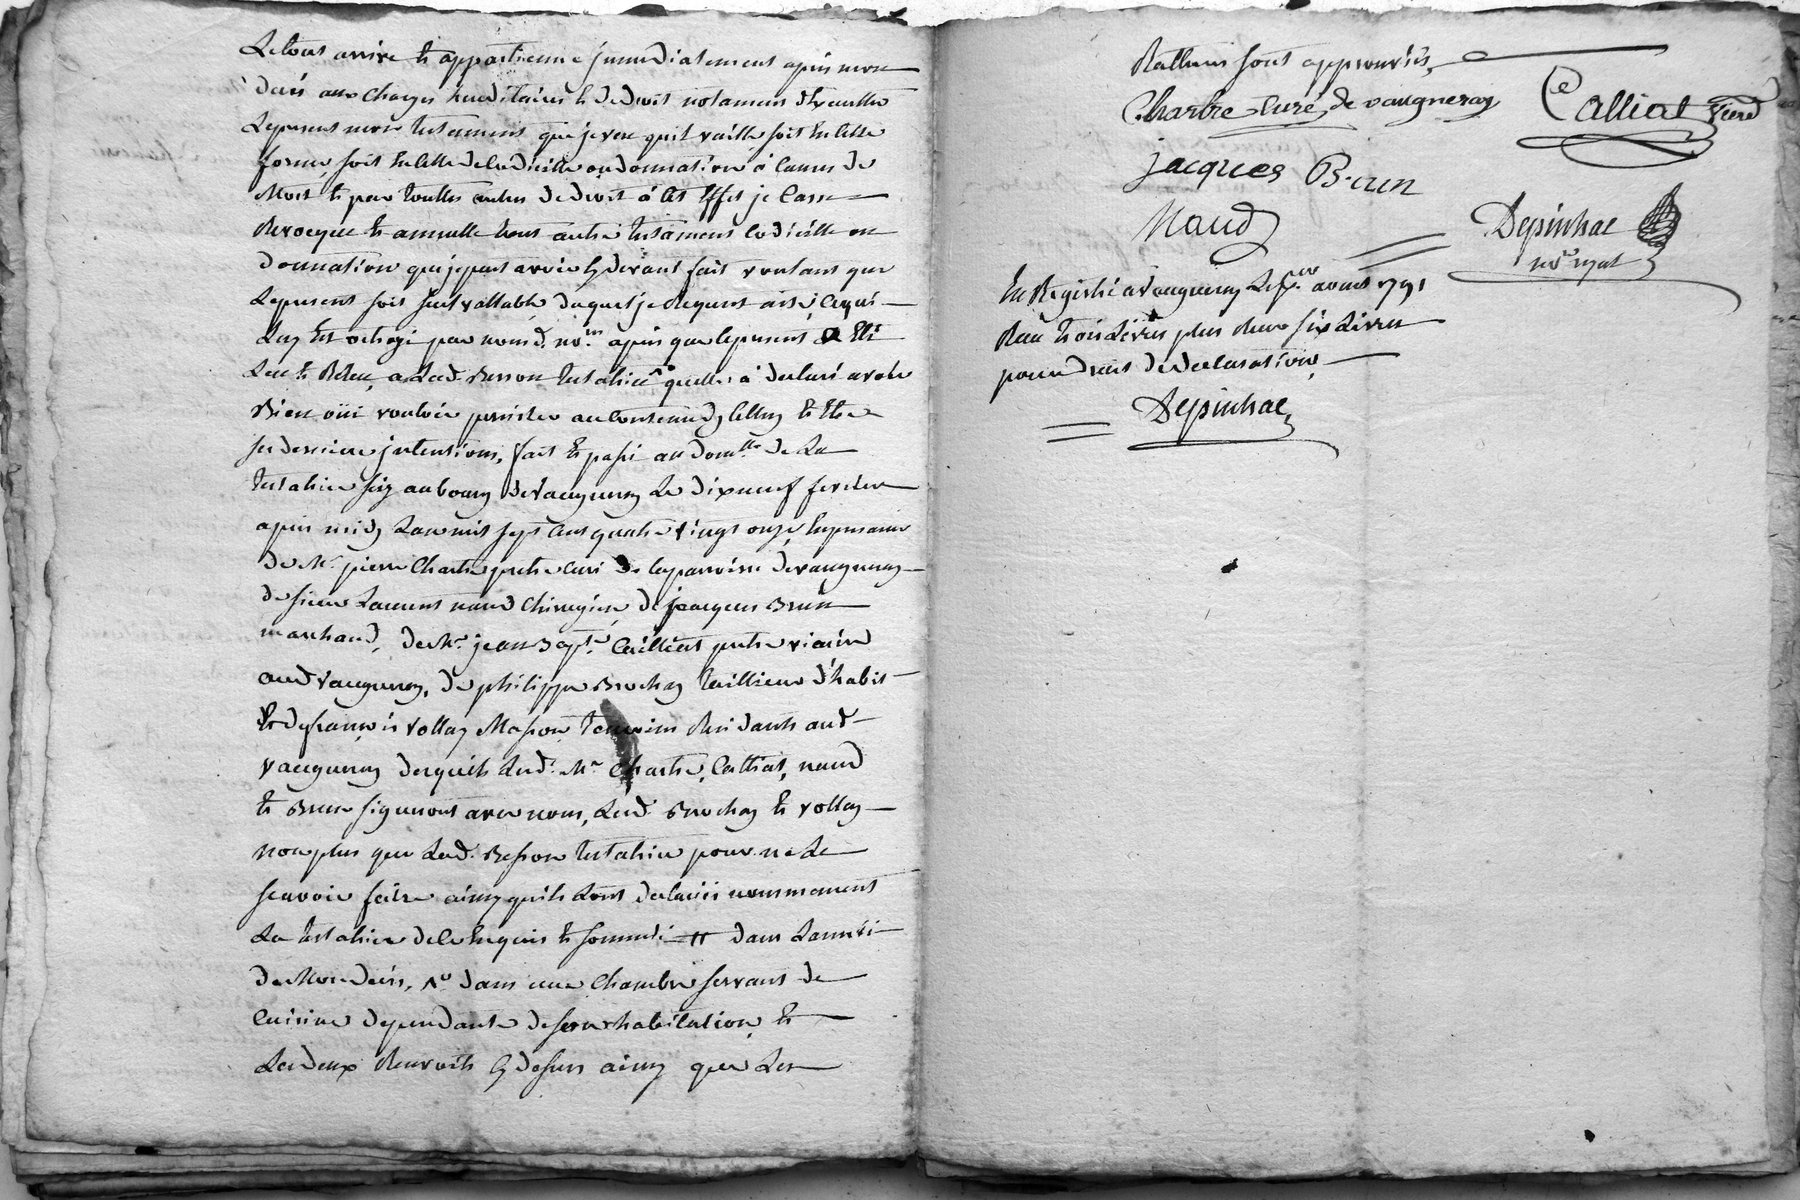 Le tout arrive et appartienne jmmediatement apres mon
deces aux charges hereditaires et de droit notament d'executter
Le present mon testament que je veux quil vaille soit en cette
forme, soit en celle de codicille ou donnation à cause de
Mort et par touttes voies de droit à cet effet je casse
Revocque et annulle tous autre testament codicille ou
donnation que je peut avoir cy devant fait voulant que
Le present soit seul vallable, duquel je Requiert acte, ce qui
Luy est octroyé par nousd. nore. apres que le present a été
Leu et Releu, a Lad. Besson testatrice quelle a declaré avoir
Bien oüi vouloir persister au contenu dycelluy et etre
ses dernieres jntentions, fait et passé au domlle. de La
testatrice sis au bourg de vaugneray Le dix neuf fevrier
apres midy Lan mil sept cent quatre vingt onze, En presence
de Mr. pierre Chartre pretre curé de la parroisse de vaugneray
de sieur Laurent naud chirugien, de jacques Brun
marchand, de Mr. jean Bapte. Calliat pretre vicaire
aud vaugneray, de philippe Brochay tailleur d'habit
Et de francois vollay Masson temoins Residants aud
vaugneray desquels Lesd. Mr. Chartre, Calliat, naud
et Brun signeront avec nous, Lesd. Brochay et vollay
non plus que Lad. Besson testatrice pour ne Le
scavoir faire ainsy quils Lont declaré nommement
La testatrice de ce Enquis et sommé dans Lannée
de Mon deces, No dans une chambre servant de
Cuisine dependante de son habitation, et
Les deux Renvois cy dessus ainsy que Les
Rattures sont approuvés,
Charbre Curé de vaugneray
Calliat vicre
jacques Brun
Naud
Depinhac
nore. royal
En Registré a vaugneray Le pr. avout 1791
Reçu trois Livres plus Reçu six Livres
pour droit de declaration,
Depinhac